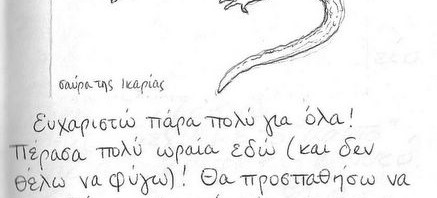 σαύρα της Ικαρίας
Ευχαριστώ πάρα πολύ για όλα!
Πέρασα πολύ ωραία εδώ (και δεν
θέλω να φύγω)! Θα προσπαθήσω να